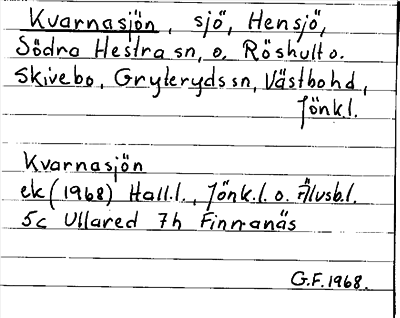 Kvarnasjön, sjö, Hensjö,
Södra Hestra sn, o. Röshult o.
Skivebo, Gryteryds sn, Västbo hd,
Jönk.l.
Kvarnasjön
ek (1968) Hall.l., Jönk.l. o. Älvsb.l.
5c Ullared 7h Finnanäs
G.F. 1968.